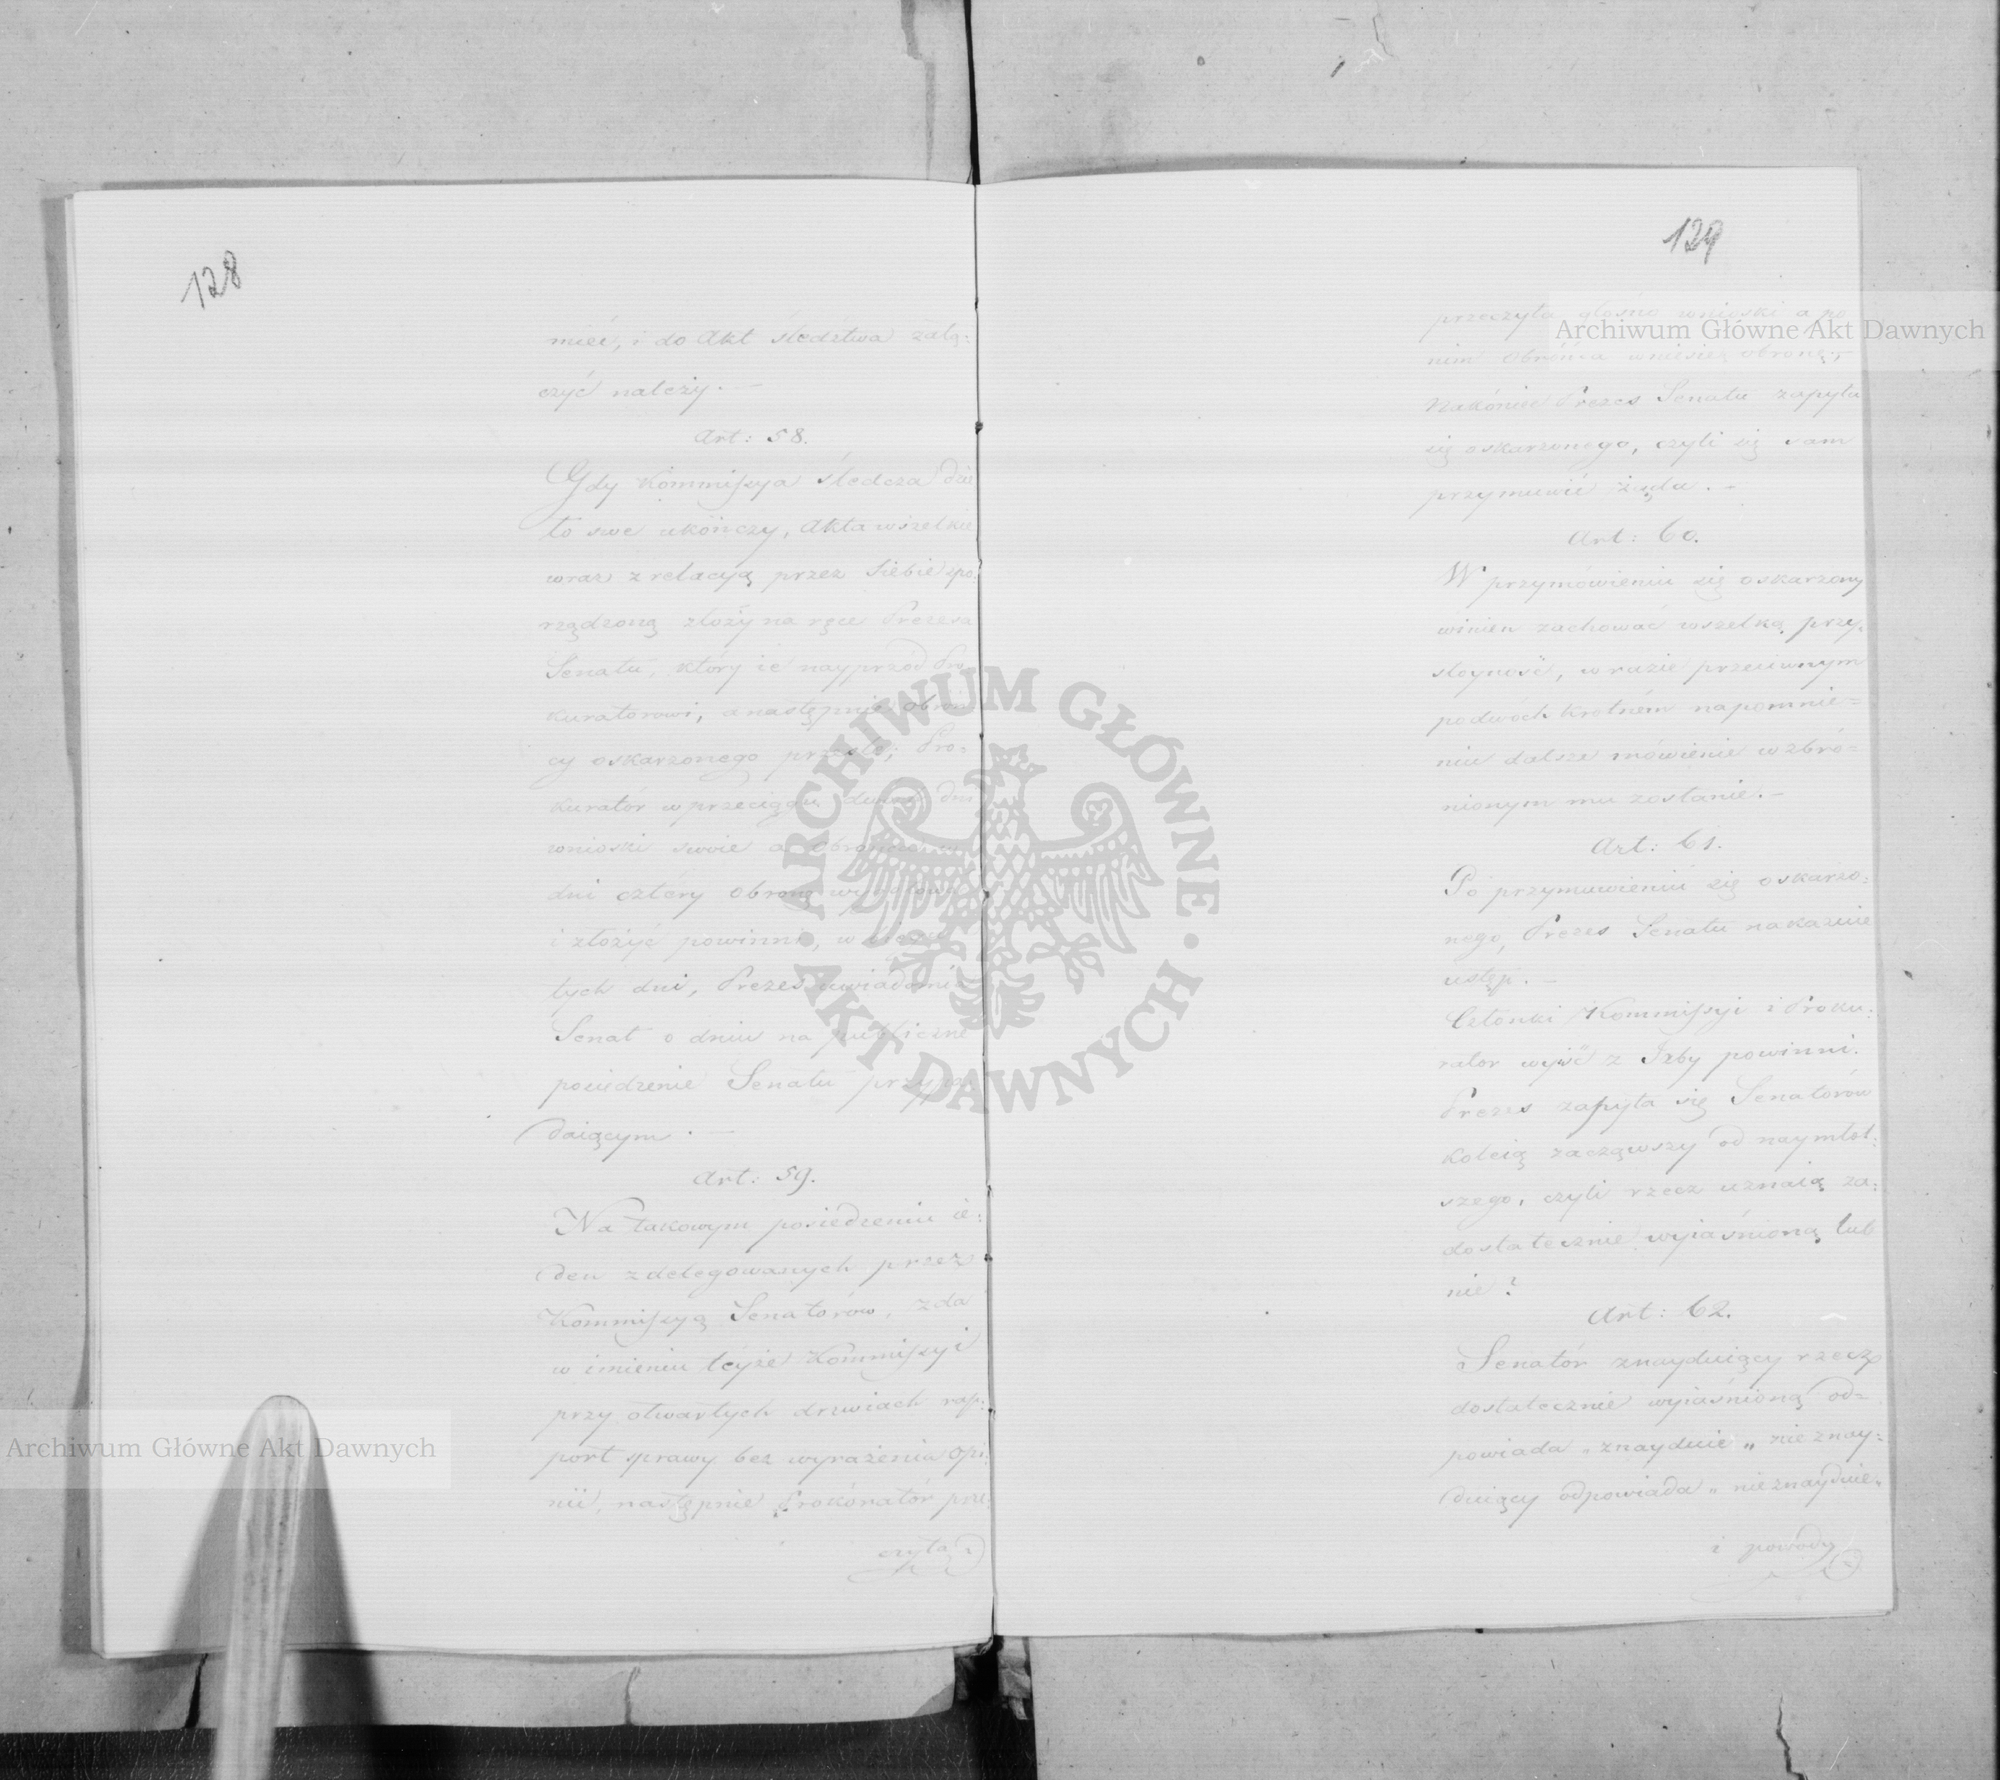 128
mieć, i do Akt śledztwa załą:
czyć należy. —
Art: 58.
Gdy Kommissya śledcza dzie
ło swe ukończy, Akta wszelkie
wraz z relacyą przez siebie spo:
rządzoną złoży na ręce Prezesa
Senatu, który ie nayprzód Pro
kuratorowi, a następnie obroń
cy oskarzonego prześle; Pro:
kurator w przeciągu dwóch dni
wnioski swoie a obrońca w
dni cztéry obronę wygotować
i złożyć powinni, w ciągu
tych dni, Prezes uwiadomi
Senat o dniu na publiczne
posiedzenie Senatu przypa:
daiącym. —
Art: 59.
Na takowym posiedzeniu ie:
den z delegowanych przez
Kommissyą Senatorów, zda
w imieniu téyże Kommissyi
przy otwartych drzwiach rap:
port sprawy bez wyrażenia opi:
nii, następnie Prokurator prze:
czyta
129
przeczyta głośno wnioski a po
nim obrońca wniesie obronę,
Nakóniec Prezes Senatu zapyta
się oskarzonego, czyli się sam
przymuwić żąda. —
Art: 60.
W przymówieniu się oskarzony
winien zachować wszelką przy:
stoyność, w razie przeciwnym
po dwóch krotném napomnie=
niu dalsze mówienie wzbró=
nionym mu zostanie. —
Art: 61.
Po przymuwieniu się oskarzo:
nego, Prezes Senatu nakazuie
ustęp. —
Członki Kommissyi i Proku:
rator wyiść z Izby powinni.
Prezes zapyta się Senatórów
koleią zacząwszy od naymłod:
szego, czyli rzecz uznaią za:
dostatecznie wyiaśnioną lub
nie?
Art: 62.
Senatór znayduiący rzecz
dostatecznie wyiaśnioną od=
powiada „znayduie„ nieznay:
duiący odpowiada „nieznayduie„
i powody
Archiwum Główne Akt Dawnych
ARCHIWUM GŁÓWNE • AKT DAWNYCH •
Archiwum Główne Akt Dawnych